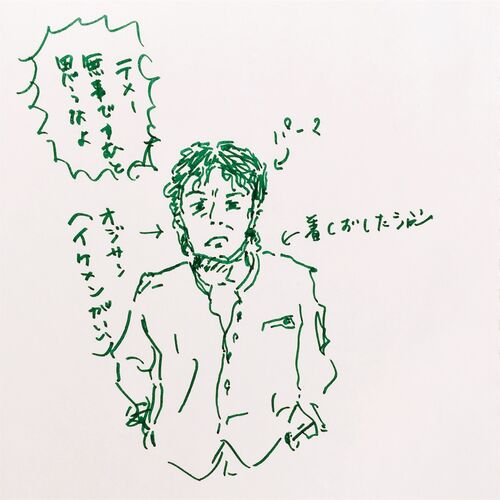 テメー
無事ですむと
思うなよ
パーマ
着くずしたシャツ
オジサン
(イケメンがいい)